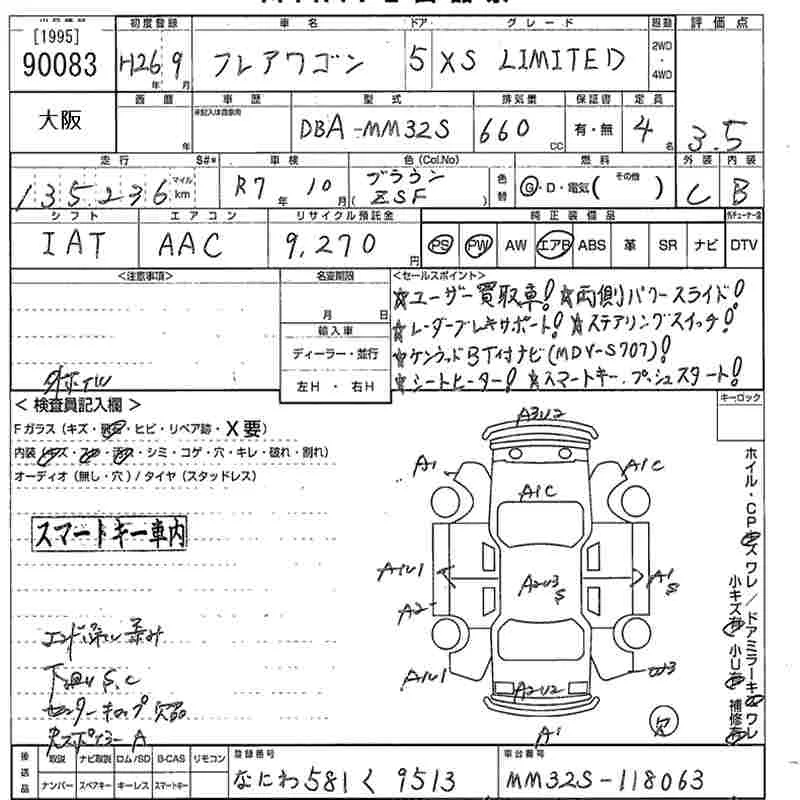 [1995]
90083
大阪
初度登録 車名 ドア グレード 駆動 評価点
H26年 9月 フレアワゴン 5 XS LIMITED 2WD・4WD
西暦 車歴 型式 排気量 保証書 定員
年 DBA-MM32S 660 CC 有・無 4名 3.5
走行 S#* 車検 色(Col.No) 燃料 外装 内装
135236 マイル km R7年 10月 ブラウン (ZSF) 色替 G・D・電気( その他 ) C B
シフト エアコン リサイクル預託金 純正装備品
IAT AAC 9,270円 PS PW AW エアB ABS 革 SR ナビ DTV
<注意事項> 名変期限 <セールスポイント>
月 日
輸入車
ディーラー・並行
左H・右H
☆ユーザー買取車! ☆両側パワースライド!
☆レーダーブレーキサポート! ☆ステアリングスイッチ!
☆ケンウッドBT付ナビ(MDV-S707)!
☆シートヒーター! ☆スマートキー、プッシュスタート!
<検査員記入欄> キーロック
Fガラス(キズ・飛石・ヒビ・リペア跡・X要)
内装(キズ・スレ・汚れ・シミ・コゲ・穴・キレ・破れ・割れ)
オーディオ(無し・穴)/タイヤ(スタッドレス)
スマートキー車内
下廻り S、C
センターキャップ欠品
A3U2
A1 A1C
A1C
A1U1 A2U3S A1S
A2
A1U1 W3
A2U2
A1 欠
ホイル・CPキズワレ/ドアミラーキズワレ
小キズ有 小U有 補修有
後送品 取説 ナビ取説 ロム/SD B-CAS リモコン 登録番号 車台番号
ナンバー スペアキー キーレス スマートキー なにわ 581 く 9513 MM32S-118063